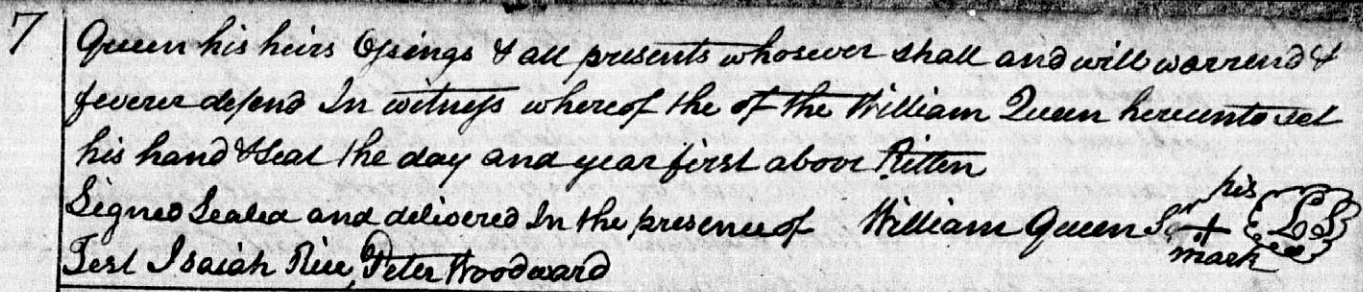 7 Queen his heirs Assings & all presents whosever shall and will warrend &
feverer defend In witness whereof the of the William Queen hereunto set
his hand & Seal the day and year first above Ritten
Signed Sealed and delivered In the presence of William Queen Sr his + mark LS
Test Isaiah Rice, Peter Woodward